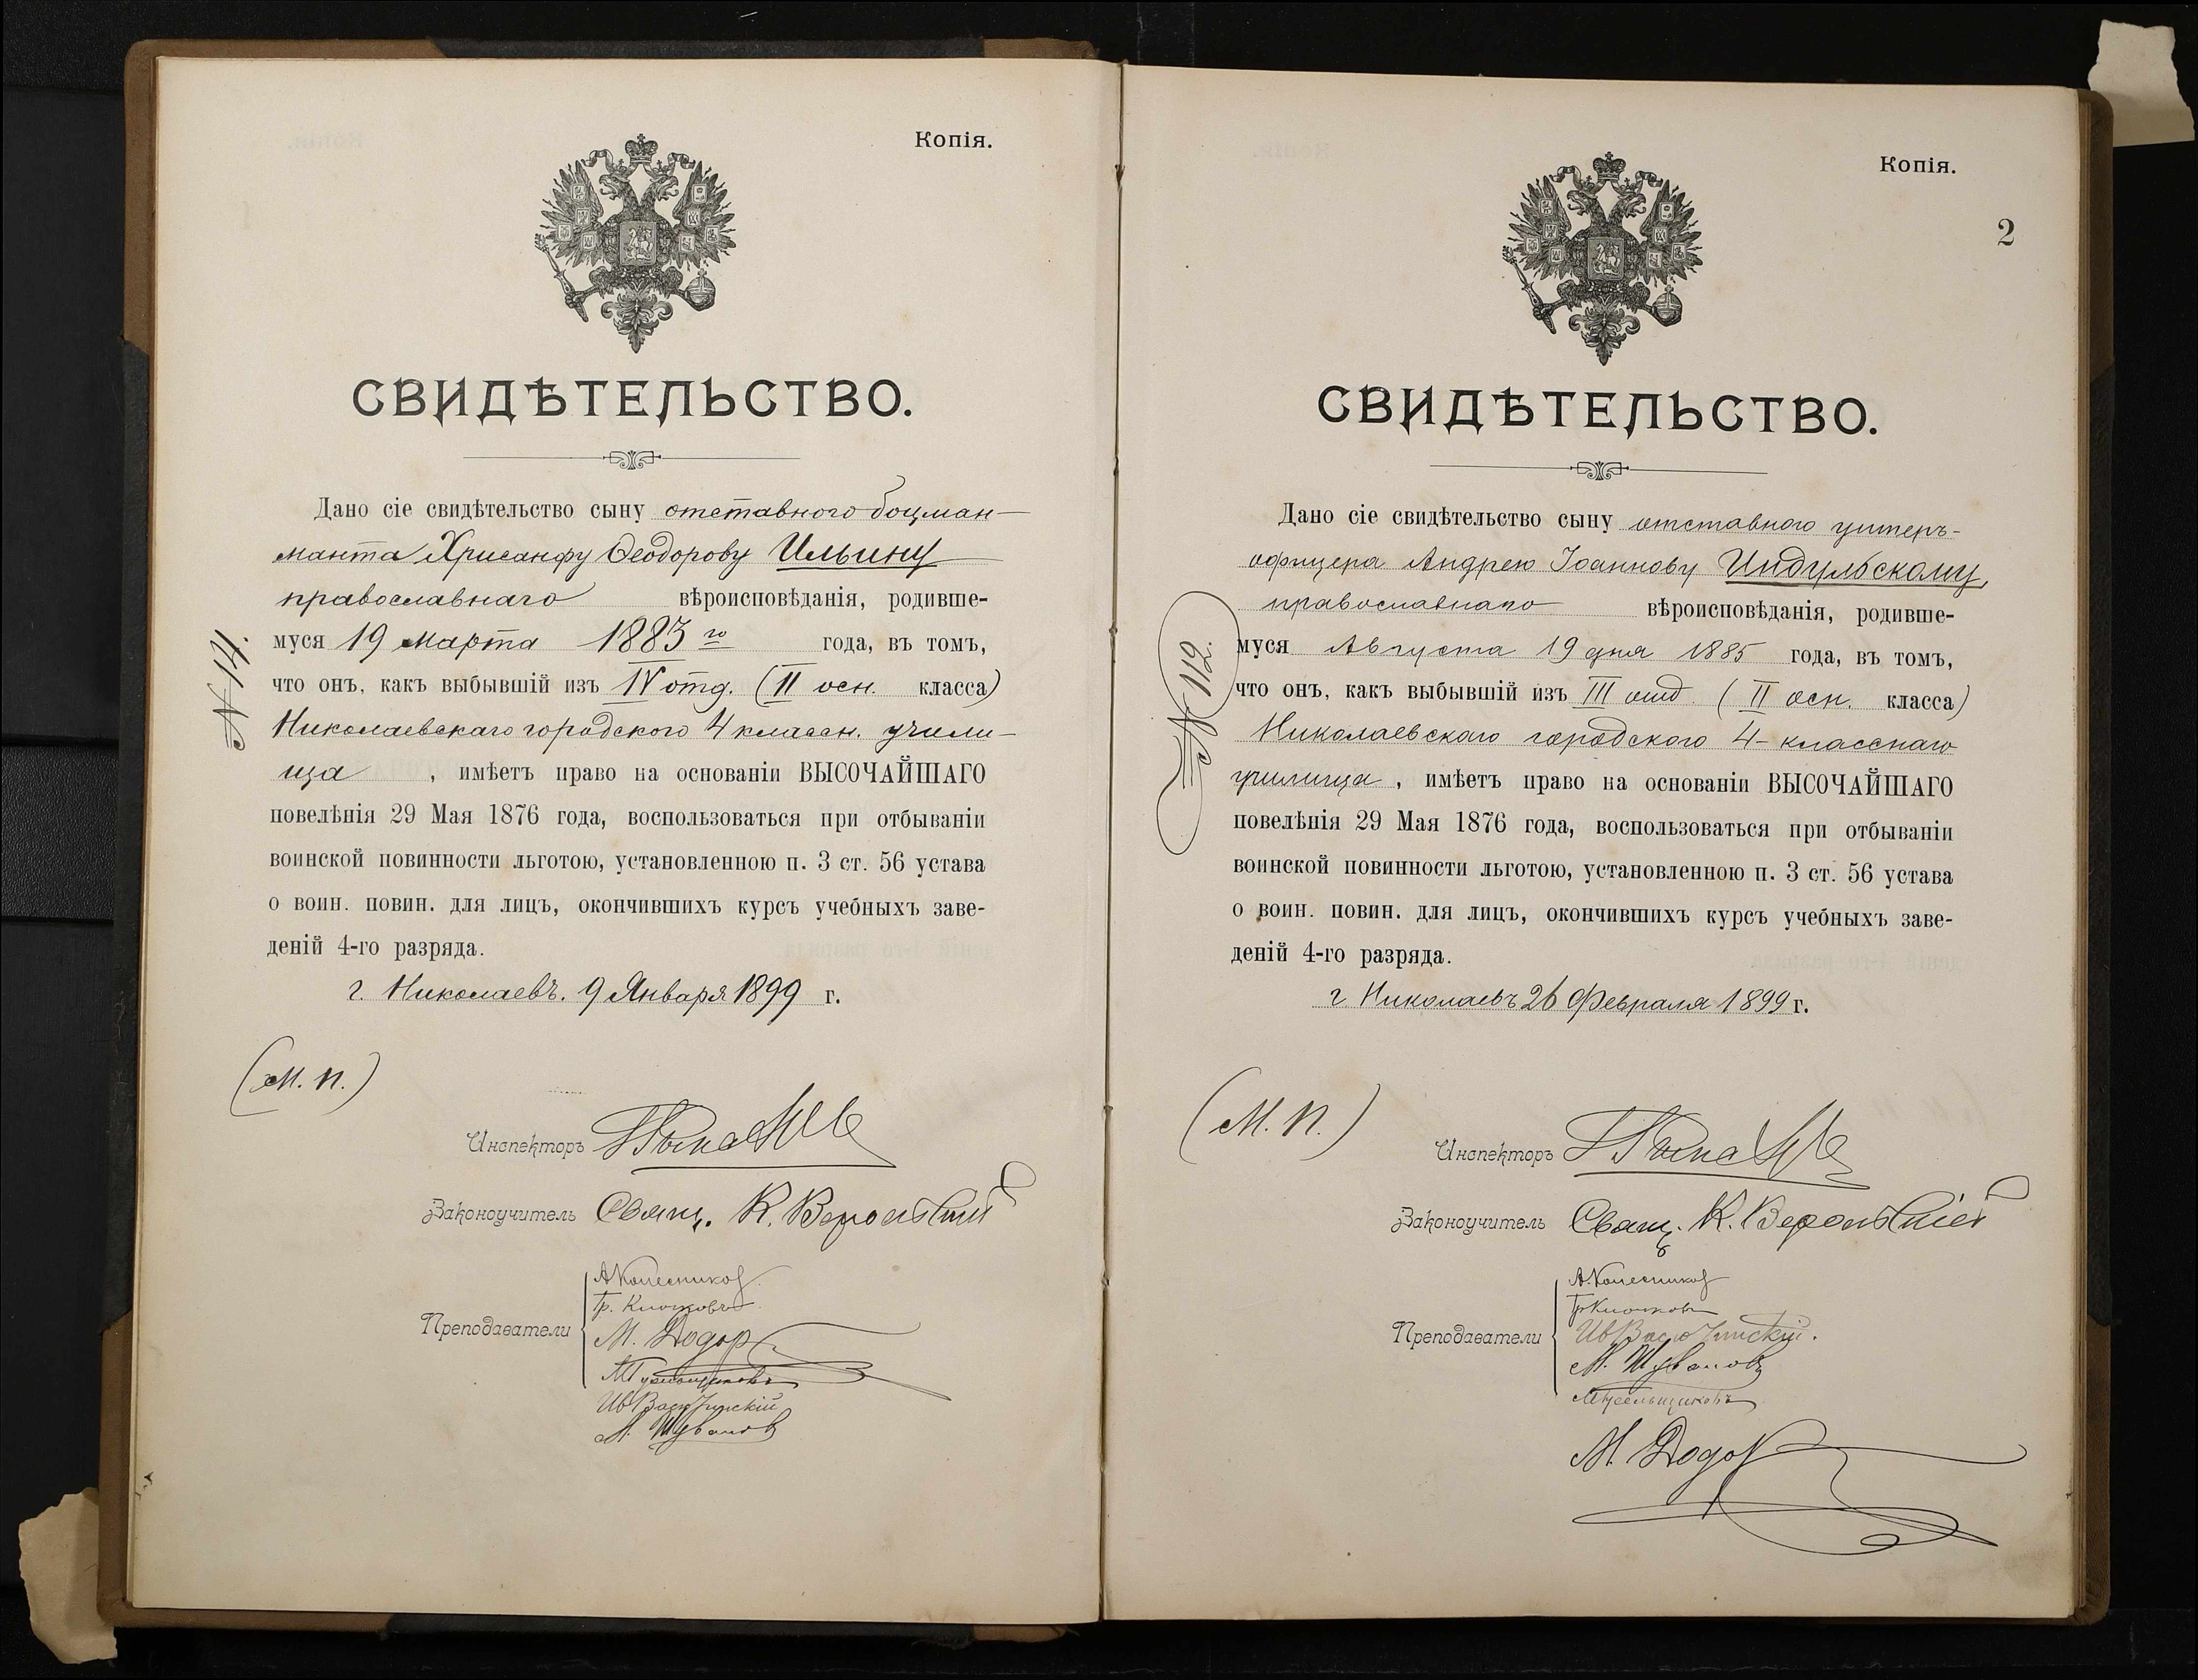 Копія.
СВИДѢТЕЛЬСТВО.
№ 14.
Дано сіе свидѣтельство сыну отставного боцман-
манта Хрисанфу Ѳеодорову Ильину
православнаго вѣроисповѣданія, родивше-
муся 19 марта 1883 го года, въ томъ,
что онъ, какъ выбывшій изъ IV отд. (II осн. класса)
Николаевскаго городского 4 классн. учили-
ща, имѣетъ право на основаніи ВЫСОЧАЙШАГО
повелѣнія 29 Мая 1876 года, воспользоваться при отбываніи
воинской повинности льготою, установленною п. 3 ст. 56 устава
о воин. повин. для лицъ, окончившихъ курсъ учебныхъ заве-
деній 4-го разряда.
г. Николаевъ. 9 Января 1899 г.
(М. П.)
Инспекторъ
Законоучитель Свящ. К.
Преподаватели
А Колесников
Гр. Клочковъ
М. Додор
М. Шуванов
Копія.
2
СВИДѢТЕЛЬСТВО.
№ 112.
Дано сіе свидѣтельство сыну отставного унтеръ-
офицера Андрею Іоаннову Индульскому,
православнаго вѣроисповѣданія, родивше-
муся Августа 19 дня 1885 года, въ томъ,
что онъ, какъ выбывшій изъ III отд. (II осн. класса)
Николаевскаго городского 4-класснаго
училища, имѣетъ право на основаніи ВЫСОЧАЙШАГО
повелѣнія 29 Мая 1876 года, воспользоваться при отбываніи
воинской повинности льготою, установленною п. 3 ст. 56 устава
о воин. повин. для лицъ, окончившихъ курсъ учебныхъ заве-
деній 4-го разряда.
г Николаевъ 26 Февраля 1899 г.
(М. П.)
Инспекторъ
Законоучитель Свящ. К.
Преподаватели
А. Колесников
Гр Клочков
М. Шуванов
М. Додор